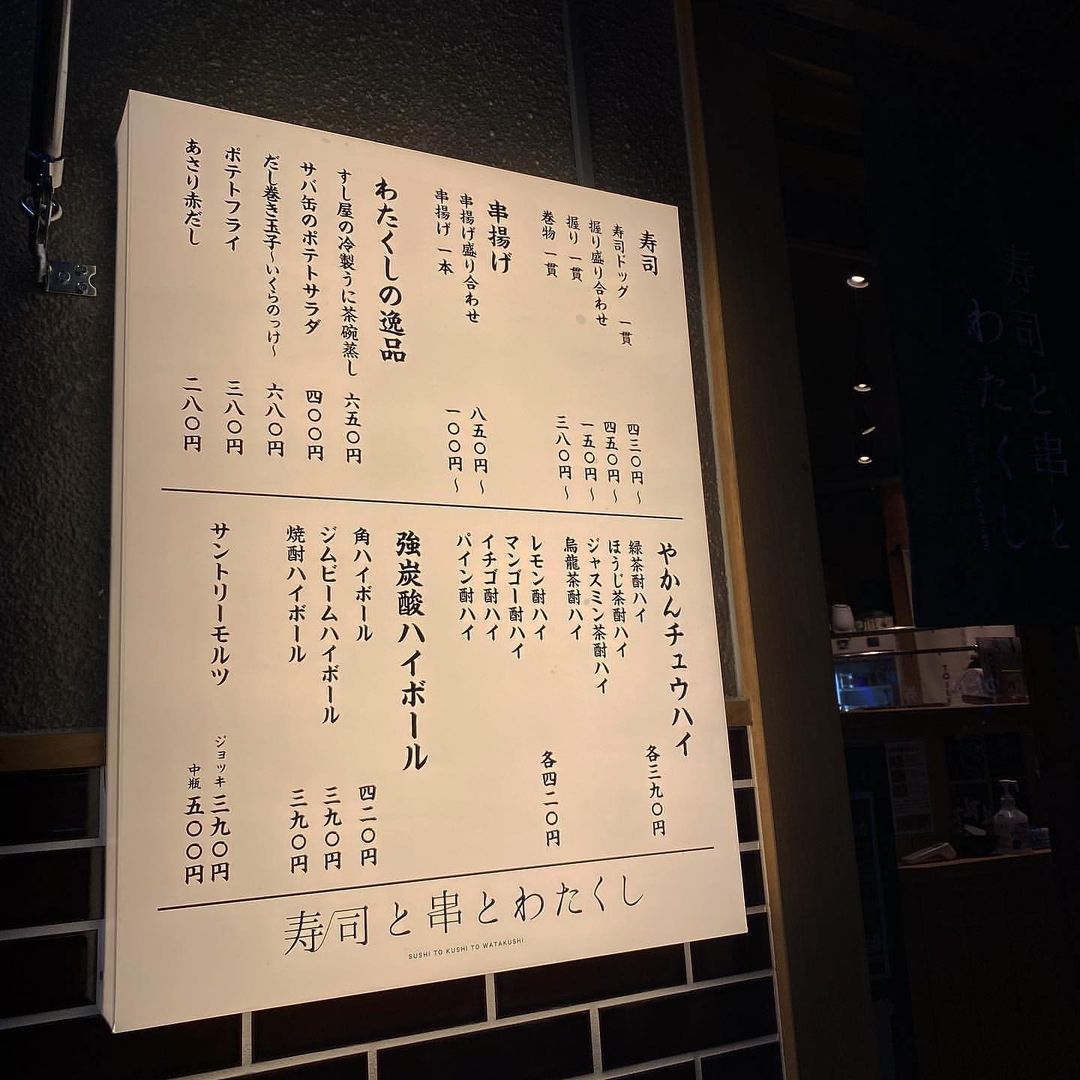 寿司
寿司ドッグ 一貫 四三〇円〜
握り盛り合わせ 四五〇円〜
握り 一貫 一五〇円〜
巻物 一貫 三八〇円〜
串揚げ
串揚げ盛り合わせ 八五〇円〜
串揚げ 一本 一〇〇円〜
わたくしの逸品
すし屋の冷製うに茶碗蒸し 六五〇円
サバ缶のポテトサラダ 四〇〇円
だし巻き玉子〜いくらのっけ〜 六八〇円
ポテトフライ 三八〇円
あさり赤だし 二八〇円
やかんチュウハイ
緑茶酎ハイ
ほうじ茶酎ハイ 各三九〇円
ジャスミン茶酎ハイ
烏龍茶酎ハイ
レモン酎ハイ 各四二〇円
マンゴー酎ハイ
イチゴ酎ハイ
パイン酎ハイ
強炭酸ハイボール
角ハイボール 四二〇円
ジムビームハイボール 三九〇円
焼酎ハイボール 三九〇円
サントリーモルツ ジョッキ 三九〇円
中瓶 五〇〇円
寿司と串とわたくし
SUSHI TO KUSHI TO WATAKUSHI
寿司と串と
わたくし